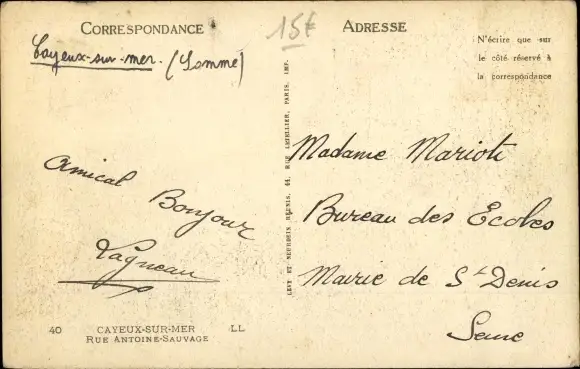 CORRESPONDANCE
15€
Cayeux-sur-mer. (Somme)
Amical Bonjour
Pagneau
40 CAYEUX-SUR-MER LL
RUE ANTOINE-SAUVAGE
LEVY ET NEURDEIN RÉUNIS, 44, RUE LETELLIER, PARIS, IMP.
ADRESSE
N'écrire que sur
le côté réservé à
la correspondance
Madame Marioti
Bureau des Écoles
Mairie de St Denis
Seine